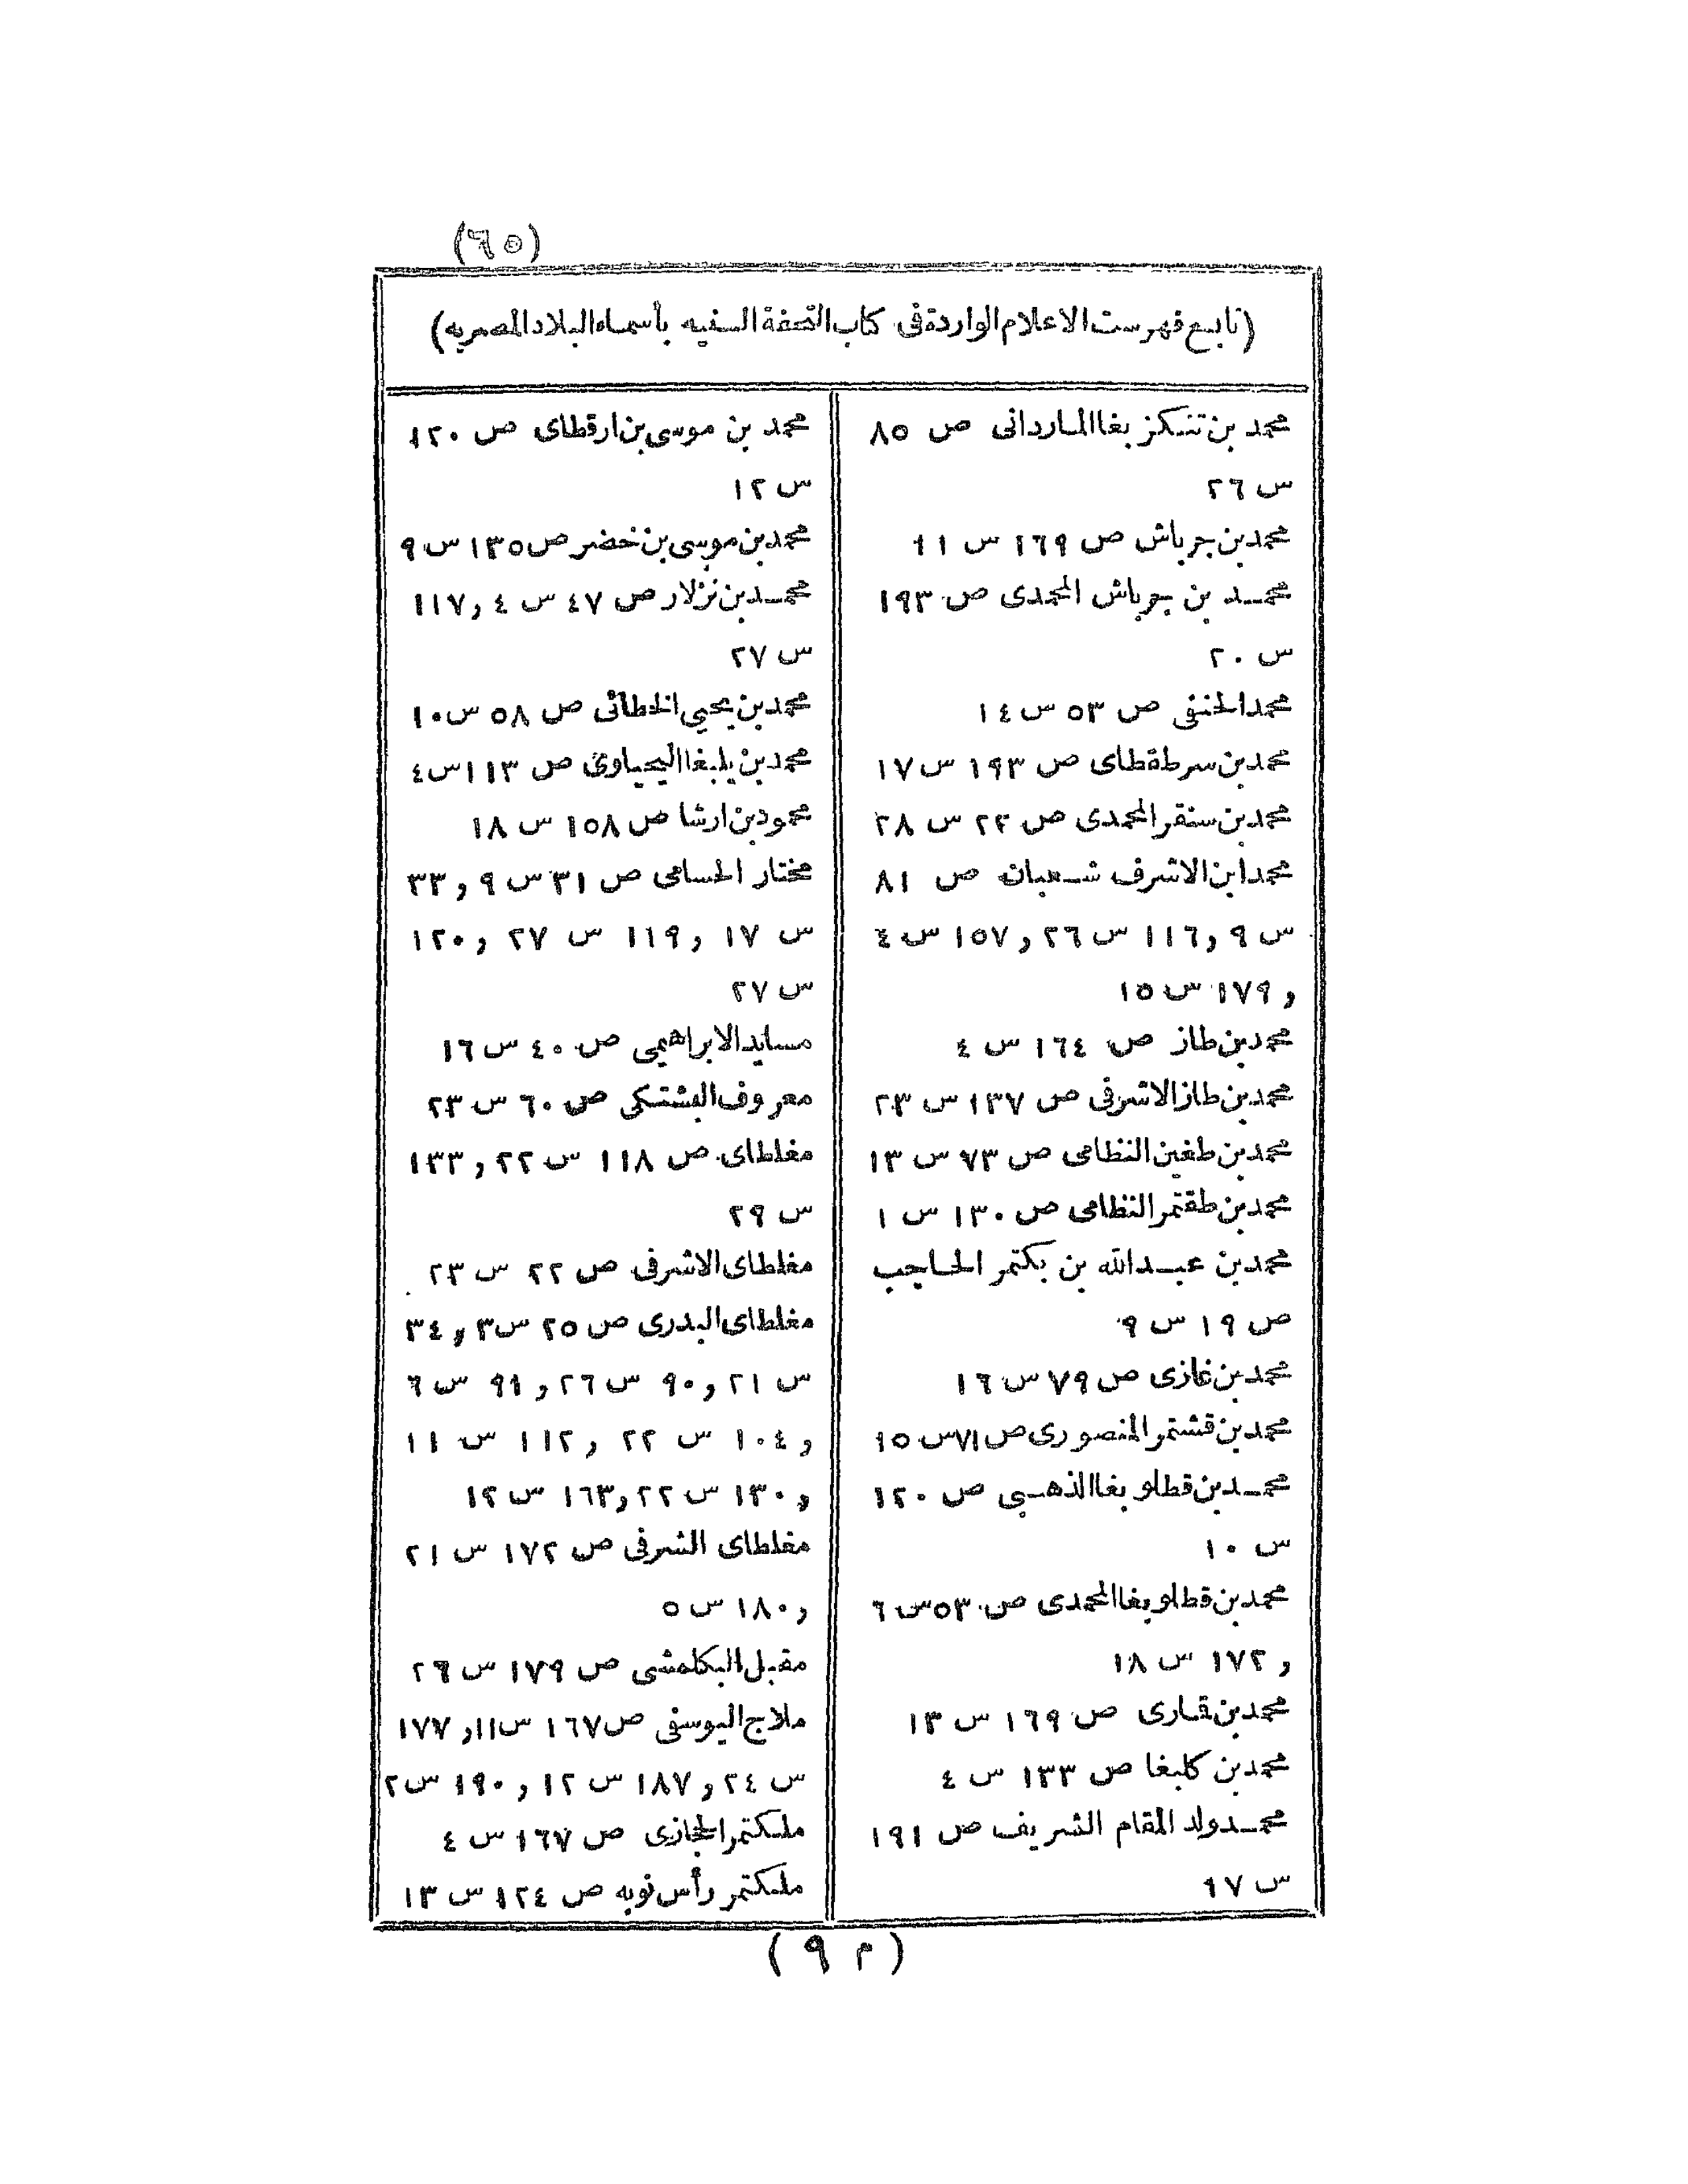 (٦٥)
(تابع فهرست الاعلام الواردة في كتاب التحفة السنيه بأسماء البلاد المصريه)
محمد بن تنكز بغا الماردانى ص ٨٥
س ٢٦
محمد بن جرباش ص ١٦٩ س ١١
محمد بن جرباش المحمدى ص ١٩٣
س ٢٠
محمد الحنفى ص ٥٣ س ١٤
محمد بن سرطقطاى ص ١٩٣ س ١٧
محمد بن سنقر المحمدى ص ٢٣ س ٢٨
محمد ابن الاشرف شعبان ص ٨١
س ٩ و ١١٦ س ٢٦ و ١٥٧ س ٤
و ١٧٩ س ١٥
محمد بن طاز ص ١٦٤ س ٤
محمد بن طاز الاشرفى ص ١٣٧ س ٢٣
محمد بن طغين النظامى ص ٧٣ س ١٣
محمد بن طقتمر النظامى ص ١٣٠ س ١
محمد بن عبد الله بن بكتمر الحاجب
ص ١٩ س ٩
محمد بن غازى ص ٧٩ س ١٦
محمد بن قشتمر المنصورى ص ٧١ س ١٥
محمد بن قطلو بغا الذهبى ص ١٢٠
س ١٠
محمد بن قطلو بغا المحمدى ص ٥٣ س ٦
و ١٧٢ س ١٨
محمد بن قارى ص ١٦٩ س ١٣
محمد بن كلبغا ص ١٣٣ س ٤
محمد ولد المقام الشريف ص ١٩١
س ١٧
محمد بن موسى بن ارقطاى ص ١٢٠
س ١٢
محمد بن موسى بن خضر ص ١٣٥ س ٩
محمد بن نزلار ص ٤٧ س ٤ و ١١٧
س ٢٧
محمد بن يحيى الخطائى ص ٥٨ س ١٠
محمد بن يلبغا اليحياوى ص ١١٣ س ٤
محمود بن ارشا ص ١٥٨ س ١٨
مختار الحسامى ص ٣١ س ٩ و ٣٣
س ١٧ و ١١٩ س ٢٧ و ١٢٠
س ٢٧
مسايد الابراهيمى ص ٤٠ س ١٦
معروف البشتكى ص ٦٠ س ٢٣
مغلطاى ص ١١٨ س ٢٢ و ١٣٣
س ٢٩
مغلطاى الاشرفى ص ٢٢ س ٢٣
مغلطاى البدرى ص ٢٥ س ٣ و ٣٤
س ٢١ و ٩٠ س ٢٦ و ٩١ س ٦
و ١٠٤ س ٢٢ و ١١٢ س ١١
و ١٣٠ س ٢٢ و ١٦٣ س ١٢
مغلطاى الشرفى ص ١٧٢ س ٢١
و ١٨٠ س ٥
مقبل البكلمشى ص ١٧٩ س ٢٦
ملاج اليوسفى ص ١٦٧ س ١١ و ١٧٧
س ٢٤ و ١٨٧ س ١٢ و ١٩٠ س ٢
ملكتمر الحجازى ص ١٦٧ س ٤
ملكتمر رأس نوبه ص ١٢٤ س ١٣
(م ٩)